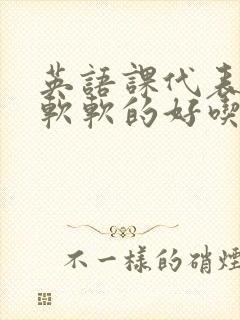 英語課代表
軟軟的好喫
不一樣的硝煙